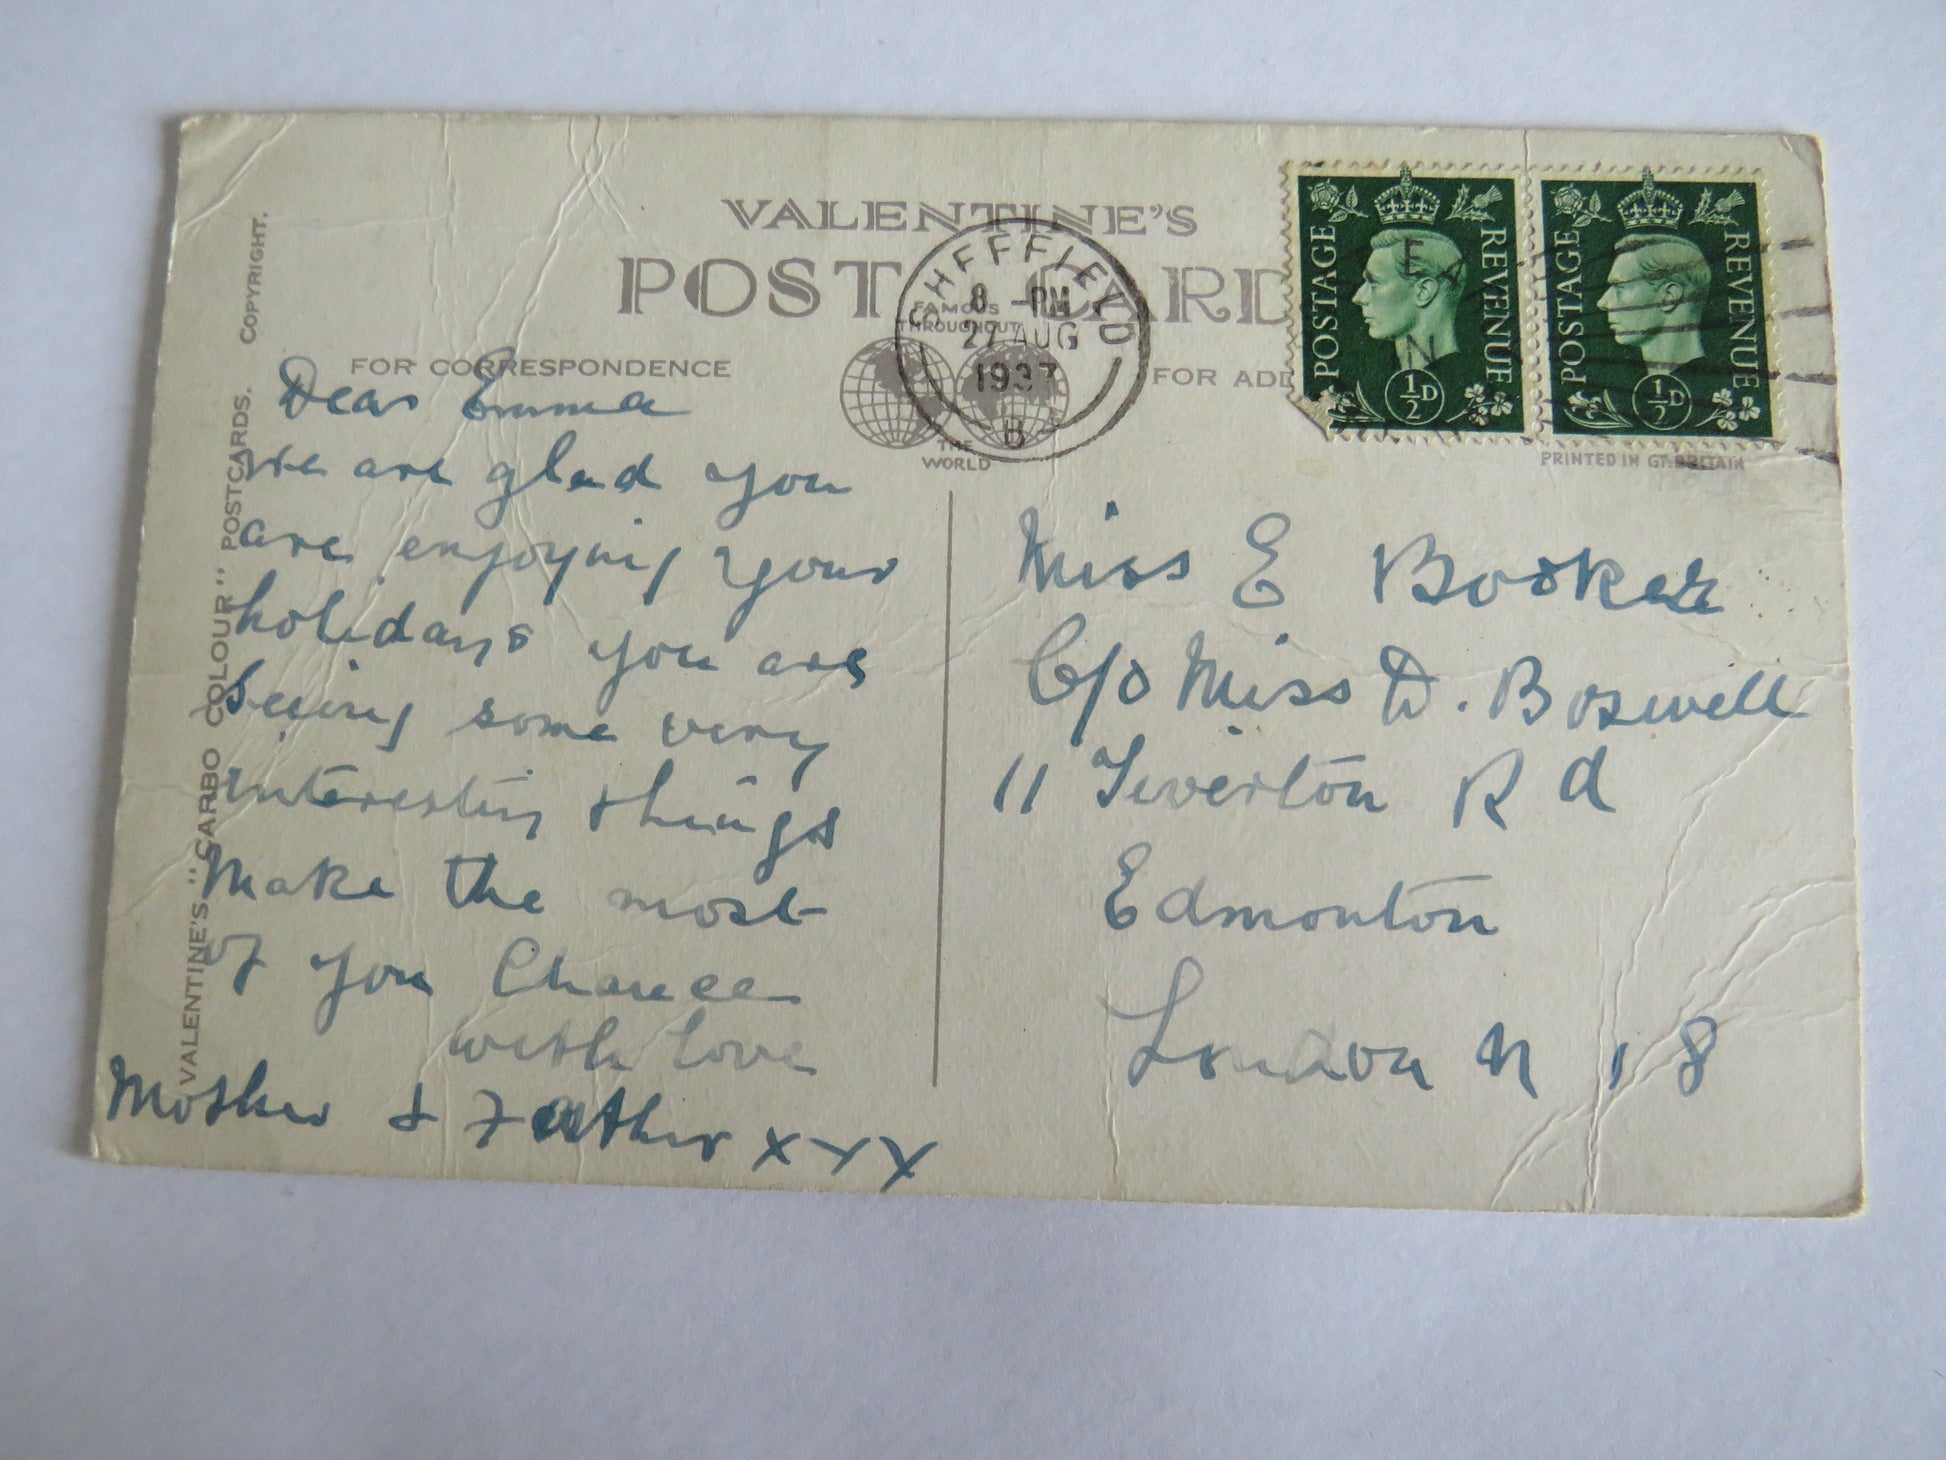 VALENTINE'S
POST CARD
FAMOUS
THROUGHOUT
THE
WORLD
SHEFFIELD
8 - PM
27 AUG
1937
B
POSTAGE
REVENUE
1/2 D
POSTAGE
REVENUE
1/2 D
PRINTED IN GT. BRITAIN
FOR CORRESPONDENCE
FOR ADD
VALENTINE'S "CARBO COLOUR" POSTCARDS. COPYRIGHT.
Dear Emma
we are glad you
are enjoying your
holidays you are
seeing some very
interesting things
Make the most
of you Chance
with love
Mother & Father x x x
Miss E Booker
C/o Miss D. Boswell
11 Tiverton Rd
Edmonton
London N 18